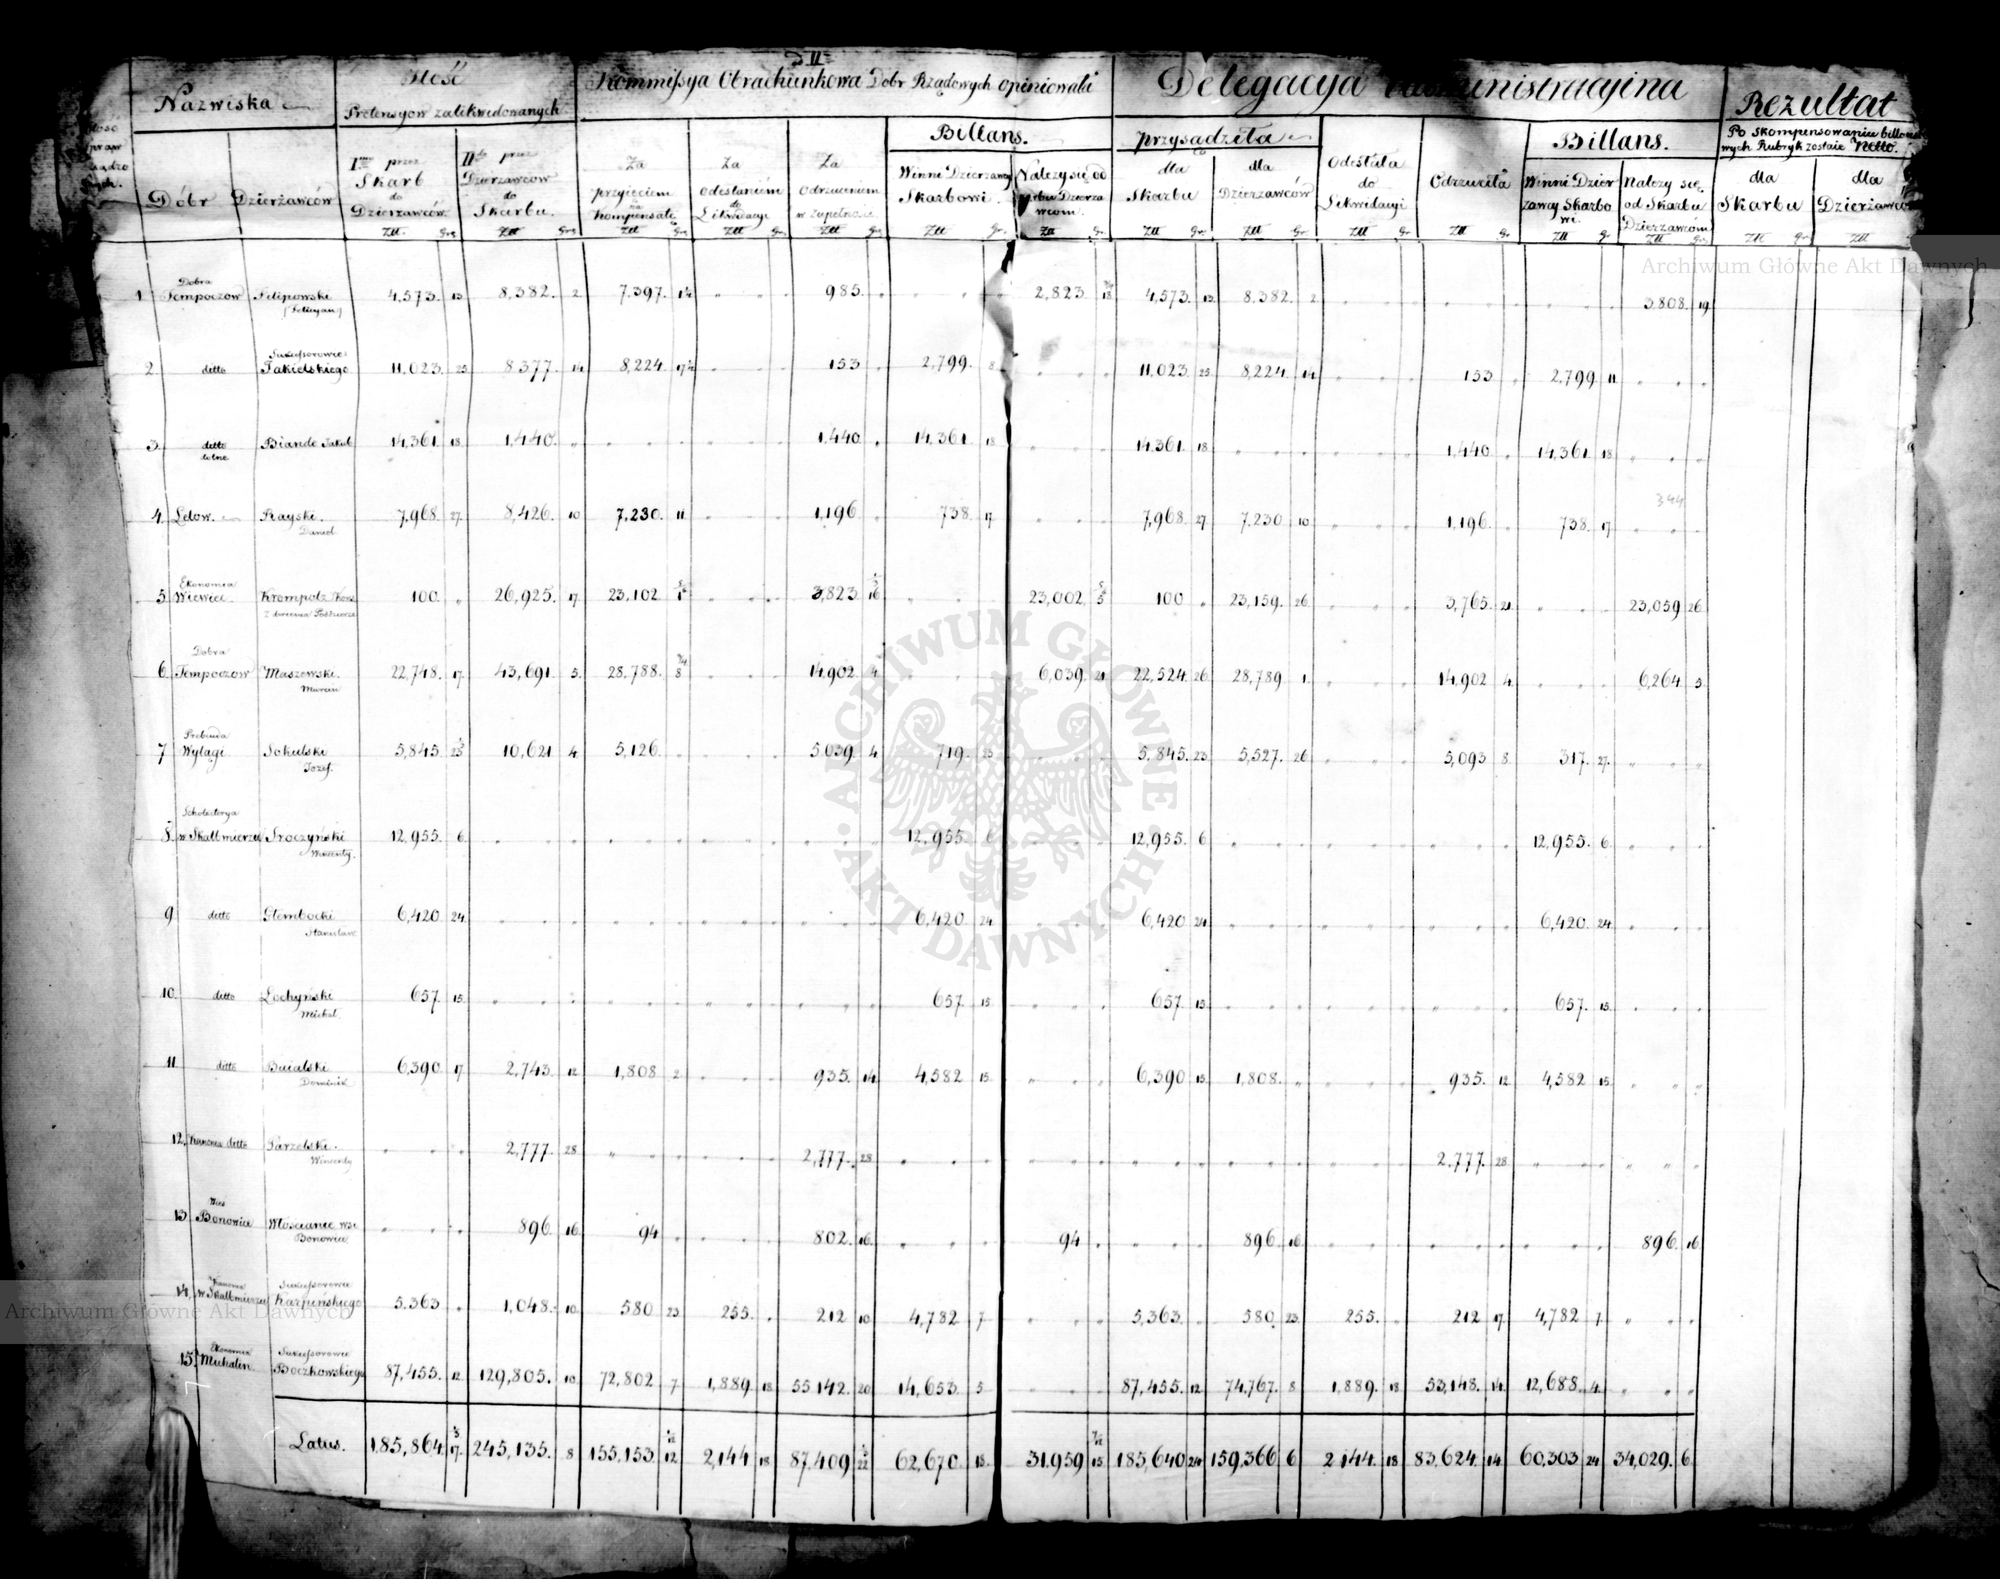 II
Nazwiska
Ilość
Pretensyow zalikwidowanych
Kommissya Obrachunkowa Dobr Rządowych opiniowała
Delegacya Administracyina
Rezultat
Dóbr Dzierżawców
I przez Skarb do Dzierzawców
II przez Dzierzawców do Skarbu.
Za przyięciem na Kompensatę
Za Odesłaniem do Likwidacyi
Za Odrzuceniem w zupełności
Billans.
Winni Dzierzawcy Skarbowi.
Nalezy się od Skarbu Dzierzawcom.
przysądziła
dla Skarbu
dla Dzierzawców
Odesłała do Likwidacyi
Odrzuciła
Billans.
Winni Dzierzawcy Skarbowi.
Nalezy się od Skarbu Dzierzawcóm
Po Skompensowaniu billansowych Rubryk zostaie Netto.
dla Skarbu
dla Dzierżawców
Złł. gr.
1. Dobra Tempoczow Filipowski 4,573. 13. 8,382. 2. 7,397. 985. 2,823. 4,573. 13. 8,382. 2 3,808. 19.
2. detto Sukcessorowie Jakielskiego 11,023. 25. 8377. 14. 8,224. 153 2,799. 8. 11,023. 25. 8,224. 14. 153 2,799 11.
3. detto Biande Jakub 14,361. 18. 1,440. 1,440 14,361 18 14,361. 18. 1,440 14,361 18
4. Lelow. Rayski. Daniel 7,968. 27. 8,426. 10 7,230. 11 1,196 738. 17 7,968. 27 7,230 10. 1,196. 738. 17
344
5. Ekonomia Wiewiec. 100. 26,925. 17 23,102 3,823 16 23,002. 100 23,159. 26. 3,765. 21. 23,059 26.
6. Dobra Tempoczow Maszewski. Marcin 22,748. 17. 43,691. 5. 28,788. 8 14,902 4. 6,039. 21. 22,524. 26. 28,789. 1. 14,902 4. 6,264. 5.
7 Prebenda Wylagi Sokulski Jozef. 5,845 23 10,621 4. 5,126. 5,039. 4 719. 23 5,845. 23. 5,527. 26. 5,093 8. 317. 27.
8. w Skalbmierzu Troczyński 12,955. 6. 12,955. 6 12,955. 6 12,955. 6.
9. detto Glembocki Stanisław 6,420 24. 6,420 24 6,420 24. 6,420. 24.
10. detto Lochyński Michał. 657. 15. 657. 15. 657. 15. 657. 15.
11. detto Buialski Dominik 6,390 17. 2,743. 12 1,808 2 935. 14. 4,582 15. 6,390 15. 1,808. 935. 12. 4,582 15.
12. Kanonia detto Parzelski. Wincenty 2,777. 28 2,777. 28. 2,777. 28
13. Wies Bonowice Włoscianie wsi Bonowice 896. 16. 94 802. 16. 94 896. 16. 896. 16.
14. Kanonia w Skalbmierzu Sukcessorowie Karpinskiego 5,363 1,048. 10. 580 23. 255. 212 10 4,782 7 5,363. 580. 23. 255. 212 17. 4,782 7.
15. Ekonomia Michalin Sukcessorowie Boczkowskiego 87,455. 12. 129,805. 10. 72,802 7 1,889. 18 55,142. 20 14,653. 5 87,455. 12 74,767. 8 1,889. 18 53,148. 14. 12,688. 4.
Latus. 185,864. 17. 245,135. 8 155,153. 12 2,144 18 87,409 22 62,670. 15. 31,959 15 185,640 24 159,366 6 2,144. 18 83,624. 14. 60,303 24 34,029. 6.
Archiwum Główne Akt Dawnych
Archiwum Główne Akt Dawnych
ARCHIWUM GŁÓWNE
AKT DAWNYCH